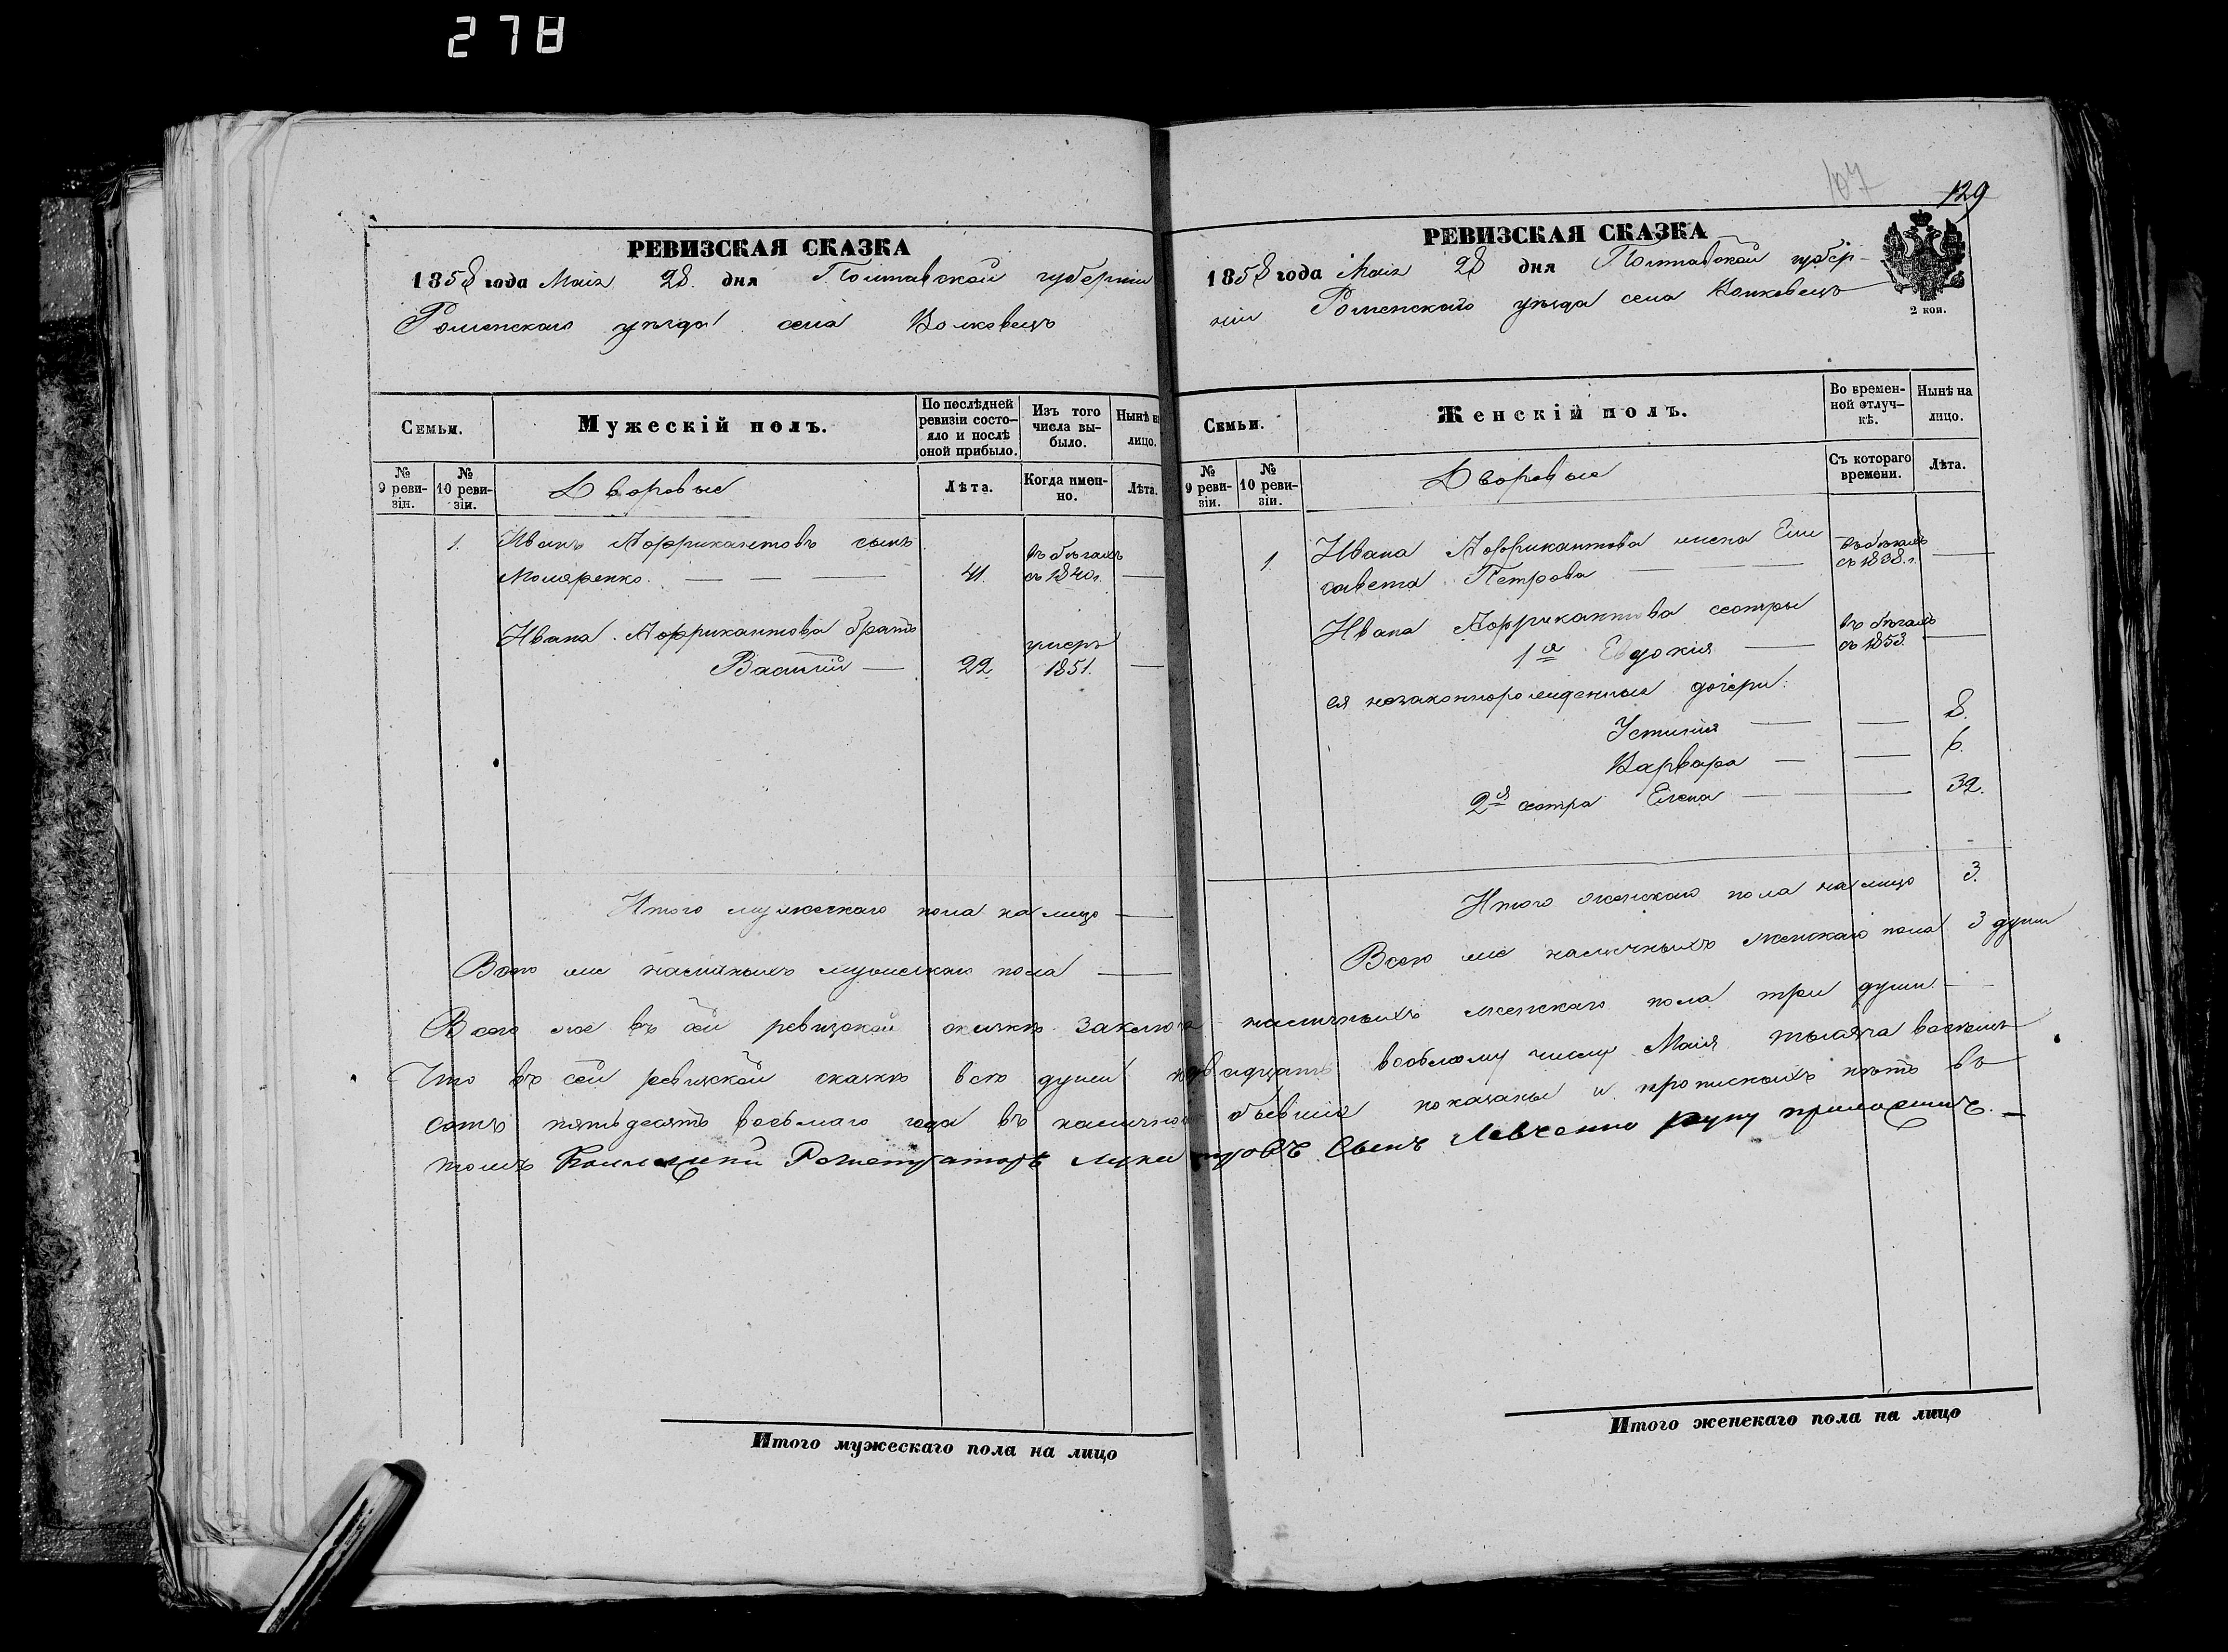 278
РЕВИЗСКАЯ СКАЗКА
1858 года Маія 28 дня Полтавской губерніи
Роменскаго уѣзда села Волковецъ
Семьи.
Мужескій полъ.
По послѣдней ревизіи состояло и послѣ оной прибыло.
Изъ того числа выбыло.
Нынѣ на лицо.
№ 9 ревизіи.
№ 10 ревизіи.
Дворовые
Лѣта.
Когда именно.
Лѣта.
1. Иванъ Аффрикантовъ сынъ
Моляренко. — — — 41. въ бѣгахъ съ 1840 г. —
Ивана Аффрикантова братъ
Василій — 22 умеръ 1851. —
Итого мужескаго пола на лицо —
Всего же наличныхъ мужескаго пола —
107
129
РЕВИЗСКАЯ СКАЗКА
1858 года Маія 28 дня Полтавской губер-
ніи Роменскаго уѣзда села Волковецъ
2 коп.
Семьи.
Женскій полъ.
Во временной отлучкѣ.
Нынѣ на лицо.
№ 9 ревизіи.
№ 10 ревизіи.
Дворовые
Съ котораго времени.
Лѣта.
1. Ивана Аффрикантова жена Ели
савета Петрова — въ бѣгахъ съ 1838 г. —
Ивана Аффрикантова сестры
1я Евдокія — въ бѣгахъ съ 1853. —
ея незаконнорожденные дочери:
Устинія — — 8.
Варвара — — 6.
2я сестра Елена — — 32.
Итого женскаго пола на лицо 3.
Всего же наличныхъ женскаго пола 3 души
Всего же въ сей ревизской сказкѣ наличныхъ женскаго пола три души. —
Что въ сей ревизской сказкѣ всѣ души двадцать восьмому числу Маія тысяча восемь
сотъ пятьдесятъ восьмаго года въ бывшія показаны и прописныхъ нѣтъ въ
томъ сынъ Левченко руку приложилъ. —
Итого мужескаго пола на лицо
Итого женскаго пола на лицо